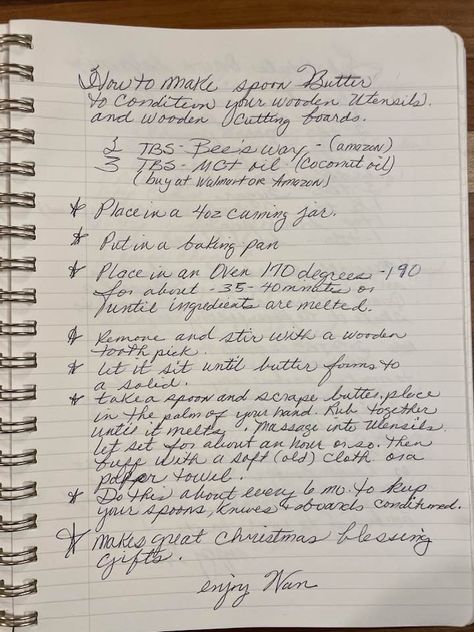 How to make spoon Butter
to Condition your wooden Utensils.
and wooden Cutting boards.
2 TBS - Bee's wax - (amazon)
3 TBS - MCT oil - (Coconut oil)
(buy at Walmart or Amazon)
* Place in a 4oz canning jar.
* Put in a baking pan
* Place in an Oven 170 degrees - 190
for about - 35-40 minutes or
until ingredients are melted.
* Remove and stir with a wooden
tooth pick.
* let it sit until butter forms to
a solid.
* take a spoon and scrape butter, place
in the palm of your hand. Rub together
until it melts. Massage into Utensils.
let set for about an hour or so. Then
buff with a soft (old) cloth or a
paper towel.
* Do this about every 6 m. to keep
your spoons, knives + boards conditioned.
* Makes great Christmas blessing
gifts.
enjoy Nan